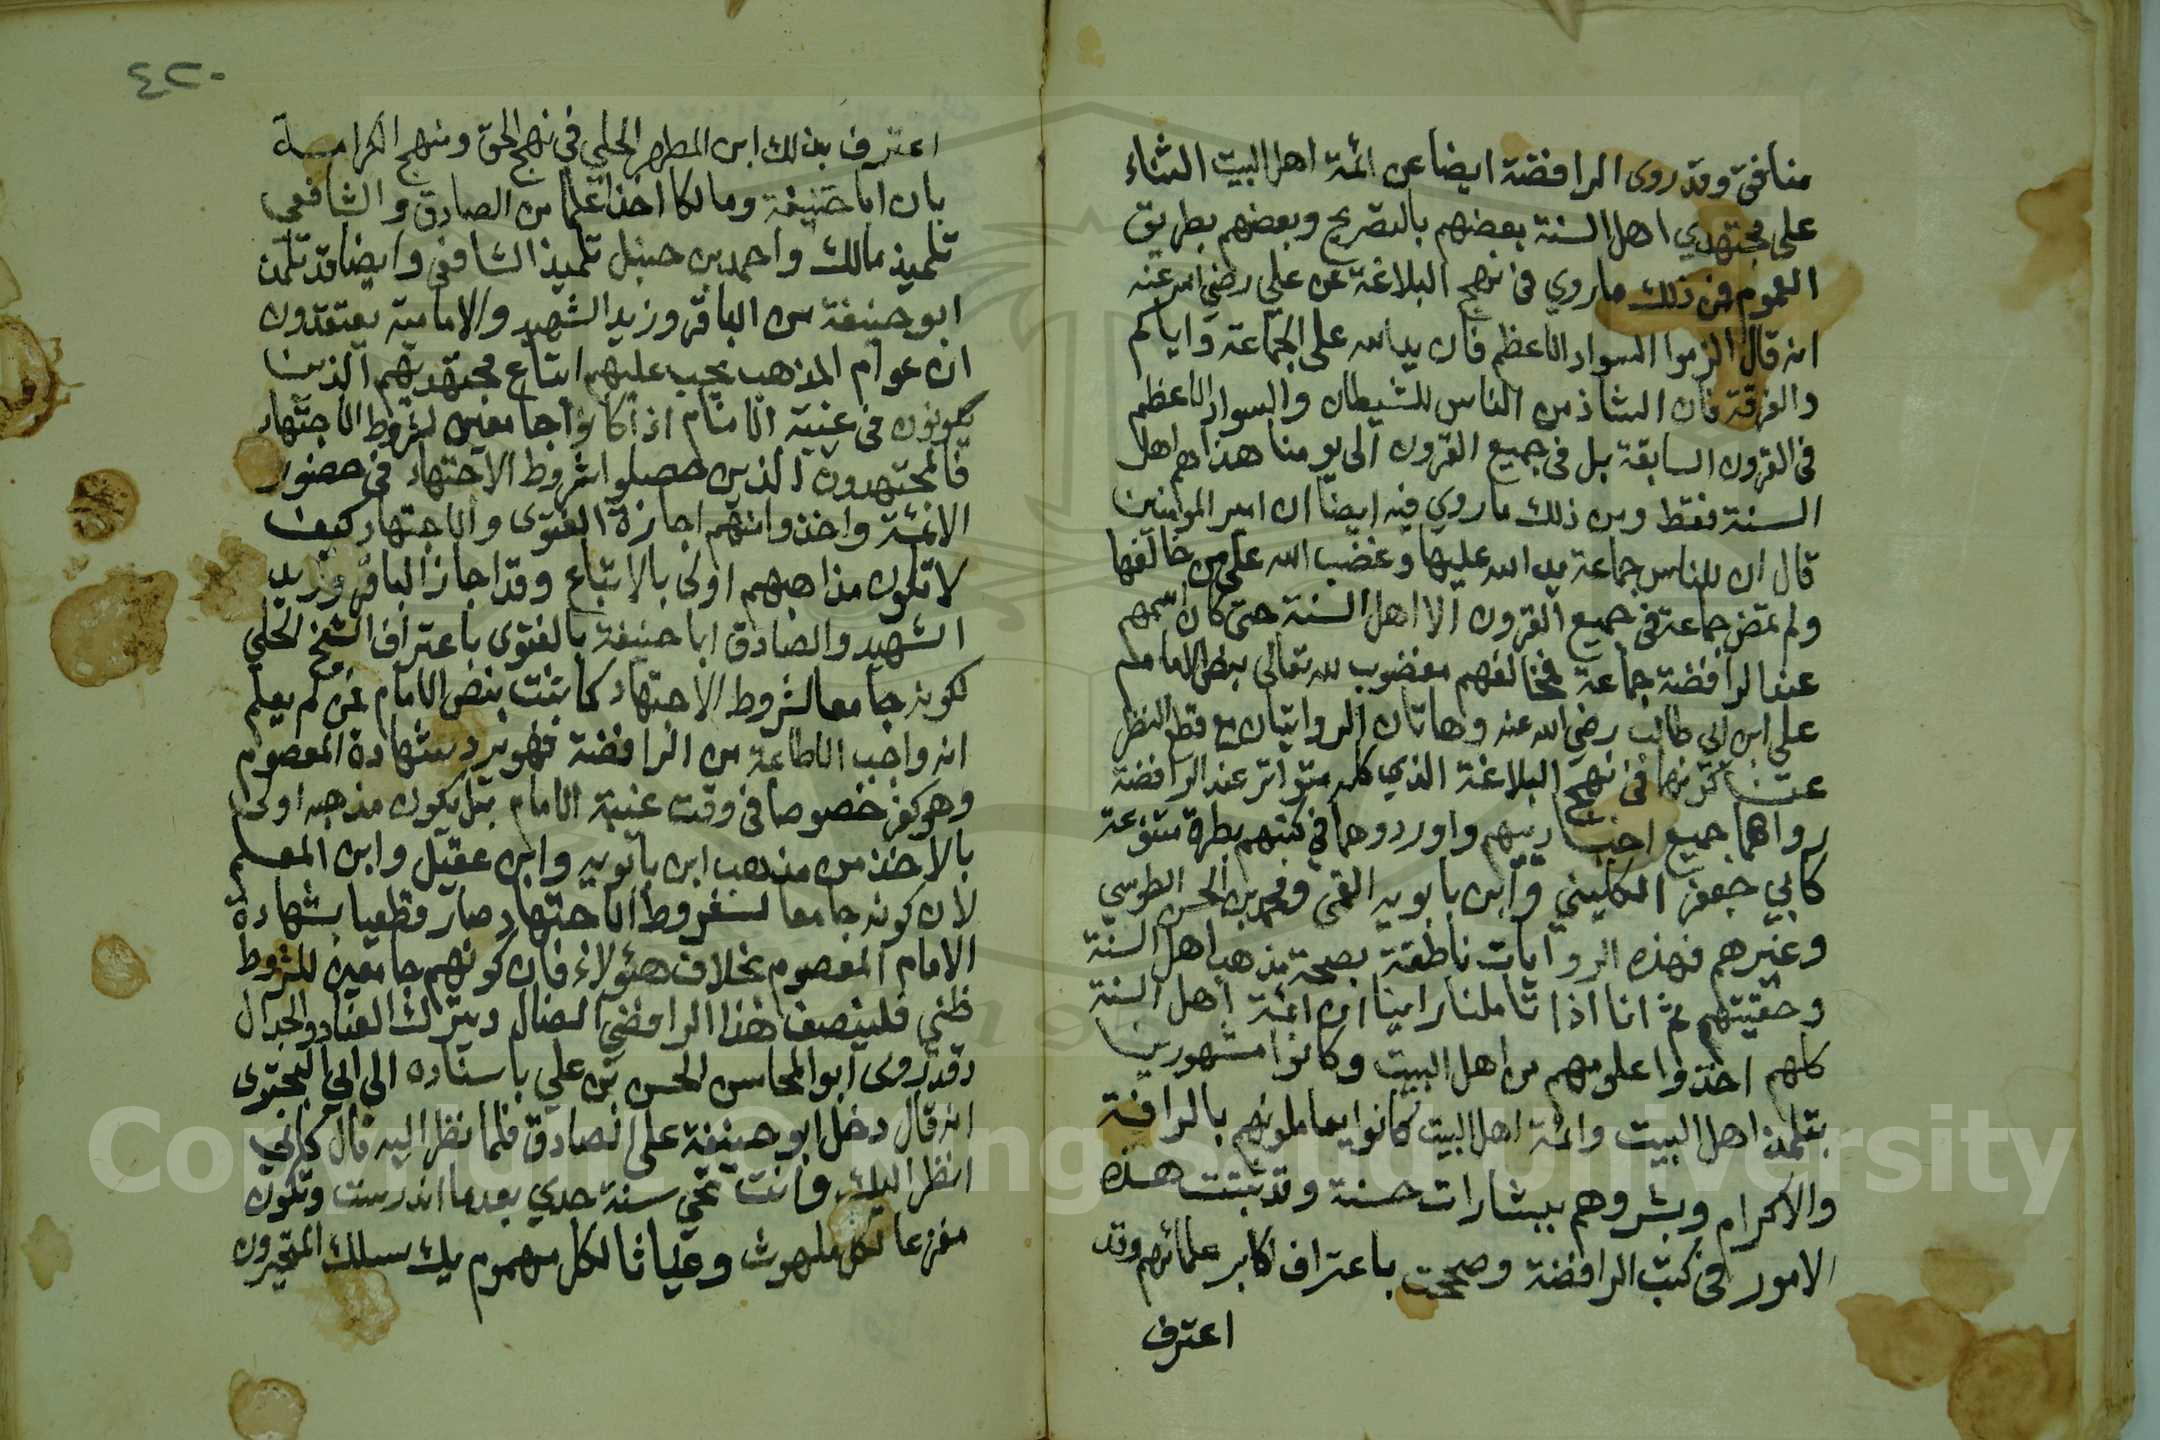 منافق وقد روى الرافضة ايضا عن ائمة اهل البيت الثناء
على مجتهدي اهل السنة بعضهم بالتصريح وبعضهم بطريق
العموم فمن ذلك ما روي في نهج البلاغة عن علي رضي الله عنه
انه قال الزموا السواد الاعظم فان يد الله على الجماعة واياكم
والفرقة فان الشاذ من الناس للشيطان والسواد الاعظم
في القرون السابقة بل في جميع القرون الى يومنا هذا هم اهل
السنة فقط ومن ذلك ما روي فيه ايضا ان امير المؤمنين
قال ان للناس جماعة يد الله عليها وغضب الله على من خالفها
ولم تمض جماعة في جميع القرون الا اهل السنة حتى كان اسمهم
عند الرافضة جماعة فمخالفهم مغضوب لله تعالى بنص الامام
علي ابن ابي طالب رضي الله عنه وهاتان الروايتان مع قطع النظر
عن كونها في نهج البلاغة الذي كله متواتر عند الرافضة
رواهما جميع اخباريهم واوردوهما في كتبهم بطرق متنوعة
كابي جعفر الكليني وابن بابويه القمي ومحمد بن الحسن الطوسي
وغيرهم فهذه الروايات ناطقة بصحة مذهب اهل السنة
وحقيتهم ثم انا اذا تاملنا راينا ان ائمة اهل السنة
كلهم اخذوا علومهم من اهل البيت وكانوا مشهورين
بتلمذ اهل البيت وائمة اهل البيت كانوا يعاملونهم بالرافة
والاكرام وبشروهم ببشارات حسنة وقد ثبتت هذه
الامور في كتب الرافضة وصححت باعتراف اكابر علمائهم وقد
اعترف
٤٢٠
اعترف بذلك ابن المطهر الحلي في نهج الحق ومنهج الكرامة
بان ابا حنيفة ومالكا اخذا علما من الصادق والشافعي
تلميذ مالك واحمد بن حنبل تلميذ الشافعي وايضا قد تلمذ
ابو حنيفة من الباقر وزيد الشهيد والامامية يعتقدون
ان عوام المذهب يجب عليهم اتباع مجتهديهم الذين
يكونون في غيبة الامام اذا كانوا جامعين لشروط الاجتهاد
فالمجتهدون الذين حصلوا شروط الاجتهاد في حضور
الائمة واخذوا منهم اجازة الفتوى والاجتهاد كيف
لا تكون مذاهبهم اولى بالاتباع وقد اجاز الباقر وزيد
الشهيد والصادق ابا حنيفة بالفتوى باعتراف الشيخ الحلي
لكونه جامعا لشروط الاجتهاد كما ثبت بنص الامام فمن لم يعلم
انه واجب الاطاعة من الرافضة فهو يرد شهادة المعصوم
وهو كفر خصوصا في وقت غيبة الامام بل يكون مذهبه اولى
بالاخذ من مذهب ابن بابويه وابن عقيل وابن المعلم
لان كونه جامعا لشروط الاجتهاد صار قطعيا بشهادة
الامام المعصوم بخلاف هؤلاء فان كونهم جامعين للشروط
ظني فلينصف هذا الرافضي الضال ويترك العناد والجدال
وقد روى ابو المحاسن الحسن بن علي باسناده الى ابي البختري
انه قال دخل ابو حنيفة على الصادق فلما نظر اليه قال كاني
انظر اليك وانت تحي سنة جدي بعد ما اندرست وتكون
مفزعا لكل ملهوف وغياثا لكل مهموم بك يسلك المتحيرون
Copyright © King Saud University